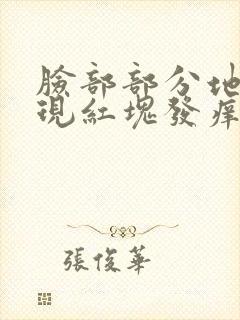 臉部部分地
現紅塊發痒
張俊華